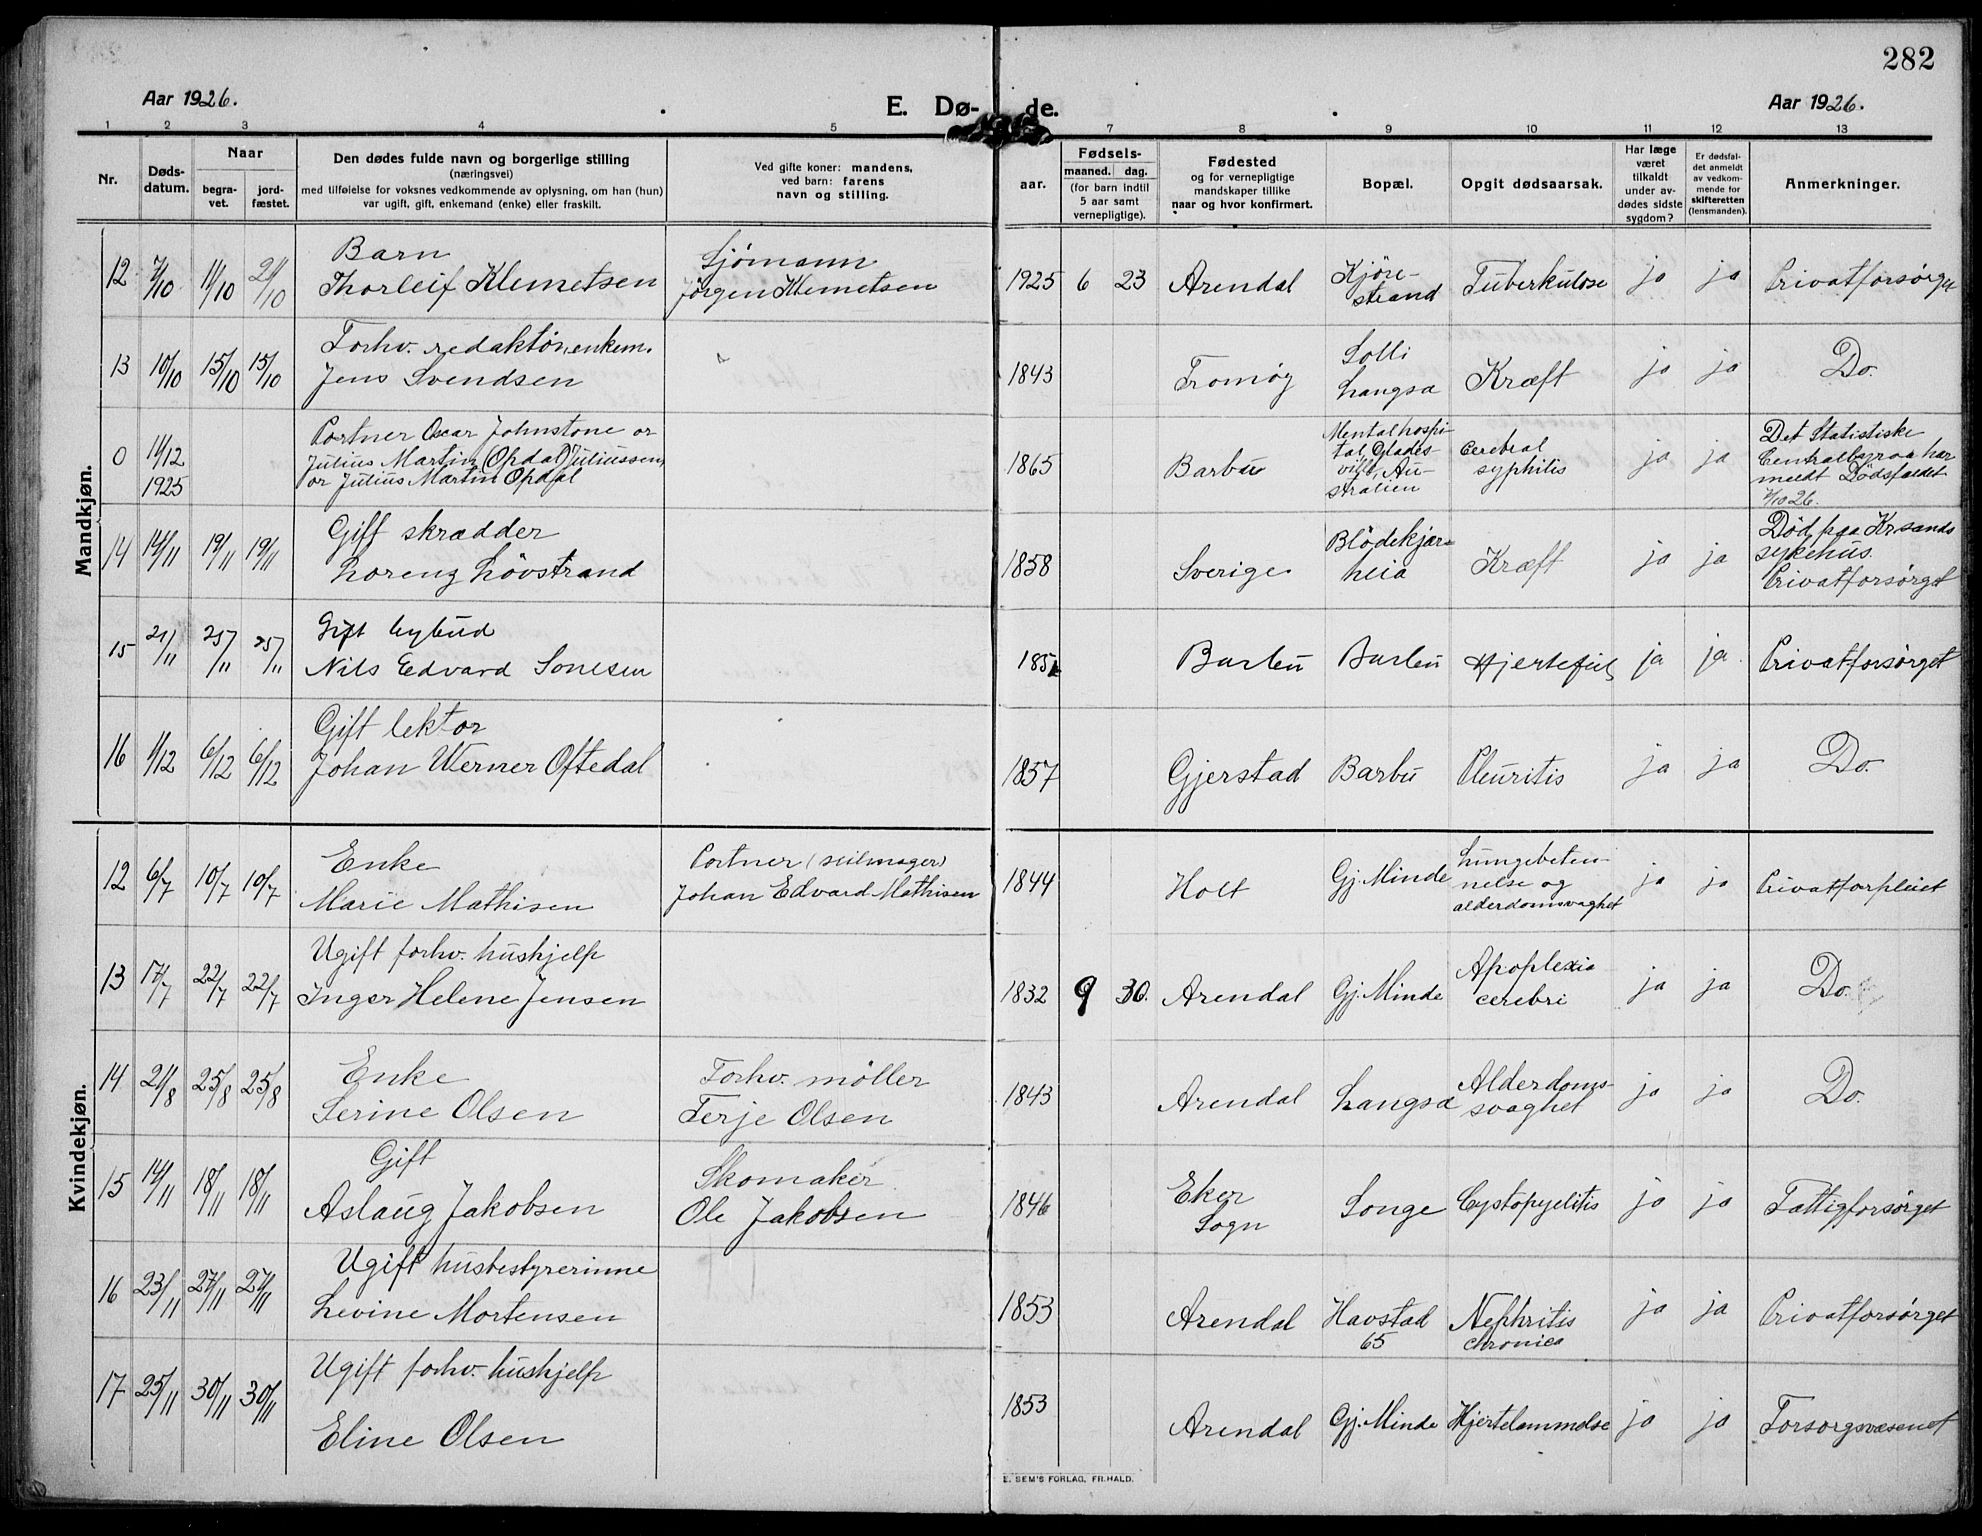 282
Aar 1926.
E. Dø- de.
Aar 1926.
1 2 3 4 5 7 8 9 10 11 12 13
Nr.
Døds-
datum.
Naar
begra-
vet.
jord-
fæstet.
Den dødes fulde navn og borgerlige stilling
(næringsvei)
med tilføielse for voksnes vedkommende av oplysning, om han (hun)
var ugift, gift, enkemand (enke) eller fraskilt.
Ved gifte koner: mandens,
ved barn: farens
navn og stilling.
aar.
Fødsels-
maaned. dag.
(for barn indtil
5 aar samt
vernepligtige).
Fødested
og for vernepligtige
mandskaper tillike
naar og hvor konfirmert.
Bopæl.
Opgit dødsaarsak.
Har læge
været
tilkaldt
under av-
dødes sidste
sygdom?
Er dødsfal-
det anmeldt
av vedkom-
mende for
skifteretten
(lensmanden).
Anmerkninger.
Mandkjøn.
12 7/10 11/10 21/10
Barn
Thorleif Klemetsen
Sjømann
Jørgen Klemetsen
1925 6 23 Arendal
Kjøre-
strand
Tuberkulose ja ja Privatforsørget
13 10/10 15/10 15/10
Forhv. redaktør, enkem.
Jens Svendsen
1843 Tromøy
Solli
Langsa
Kræft ja ja Do.
0 11/12
1925
Portner Oscar Johnstone or
Julius Martin (Opdal) Juliussen,
or Julius Martin Opdal
1865 Barbu
Mentalhospi-
tal, Glades-
ville, Au-
stralien
Cerebral
syphilis
ja ja
Det Statistiske
Centralbyraa har
meldt Dødsfaldet
7/10 26.
14 14/11 19/11 19/11
Gift skrædder
Lorenz Løvstrand
1858 Sverige
Blødekjær-
heia
Kræft ja ja
Død paa Kr.sands
sykehus.
Privatforsørget
15 21/11 25/11 25/11
Gift bybud
Nils Edvard Sonesen
185 Barbu Barbu Hjertefeil ja ja. Privatforsørget
16 1/12 6/12 6/12
Gift lektor
Johan Werner Oftedal
1857 Gjerstad Barbu Pleuritis ja ja Do.
Kvindekjøn.
12 6/7 10/7 10/7
Enke
Marie Mathisen
Portner (seilmager)
Johan Edvard Mathisen
1844 Holt Gj. Minde
Lungebeten-
nelse og
alderdomsvaghet
ja ja Privatforpleiet
13 17/7 22/7 22/7
Ugift forhv. hushjelp
Inger Helene Jensen
1832 9 30. Arendal Gj. Minde
Apoplexia
cerebri
ja ja Do.
14 21/8 25/8 25/8
Enke
Serine Olsen
Forhv. møller
Terje Olsen
1843 Arendal Langsæ
Alderdoms-
svaghet
ja ja Do.
15 14/11 18/11 18/11
Gift
Aslaug Jakobsen
Skomaker
Ole Jakobsen
1846
Eker
Sogn
Songe Cystopyelitis ja ja Fattigforsørget
16 23/11 27/11 27/11
Ugift husbestyrerinne
Levine Mortensen
1853 Arendal
Havstad
65
Nephritis
chronica
ja ja Privatforsørget
17 25/11 30/11 30/11
Ugift forhv. hushjelp
Eline Olsen
1853 Arendal Gj. Minde Hjertelammelse ja ja Forsorgsvæsenet
E. SEM'S FORLAG, FR.HALD.